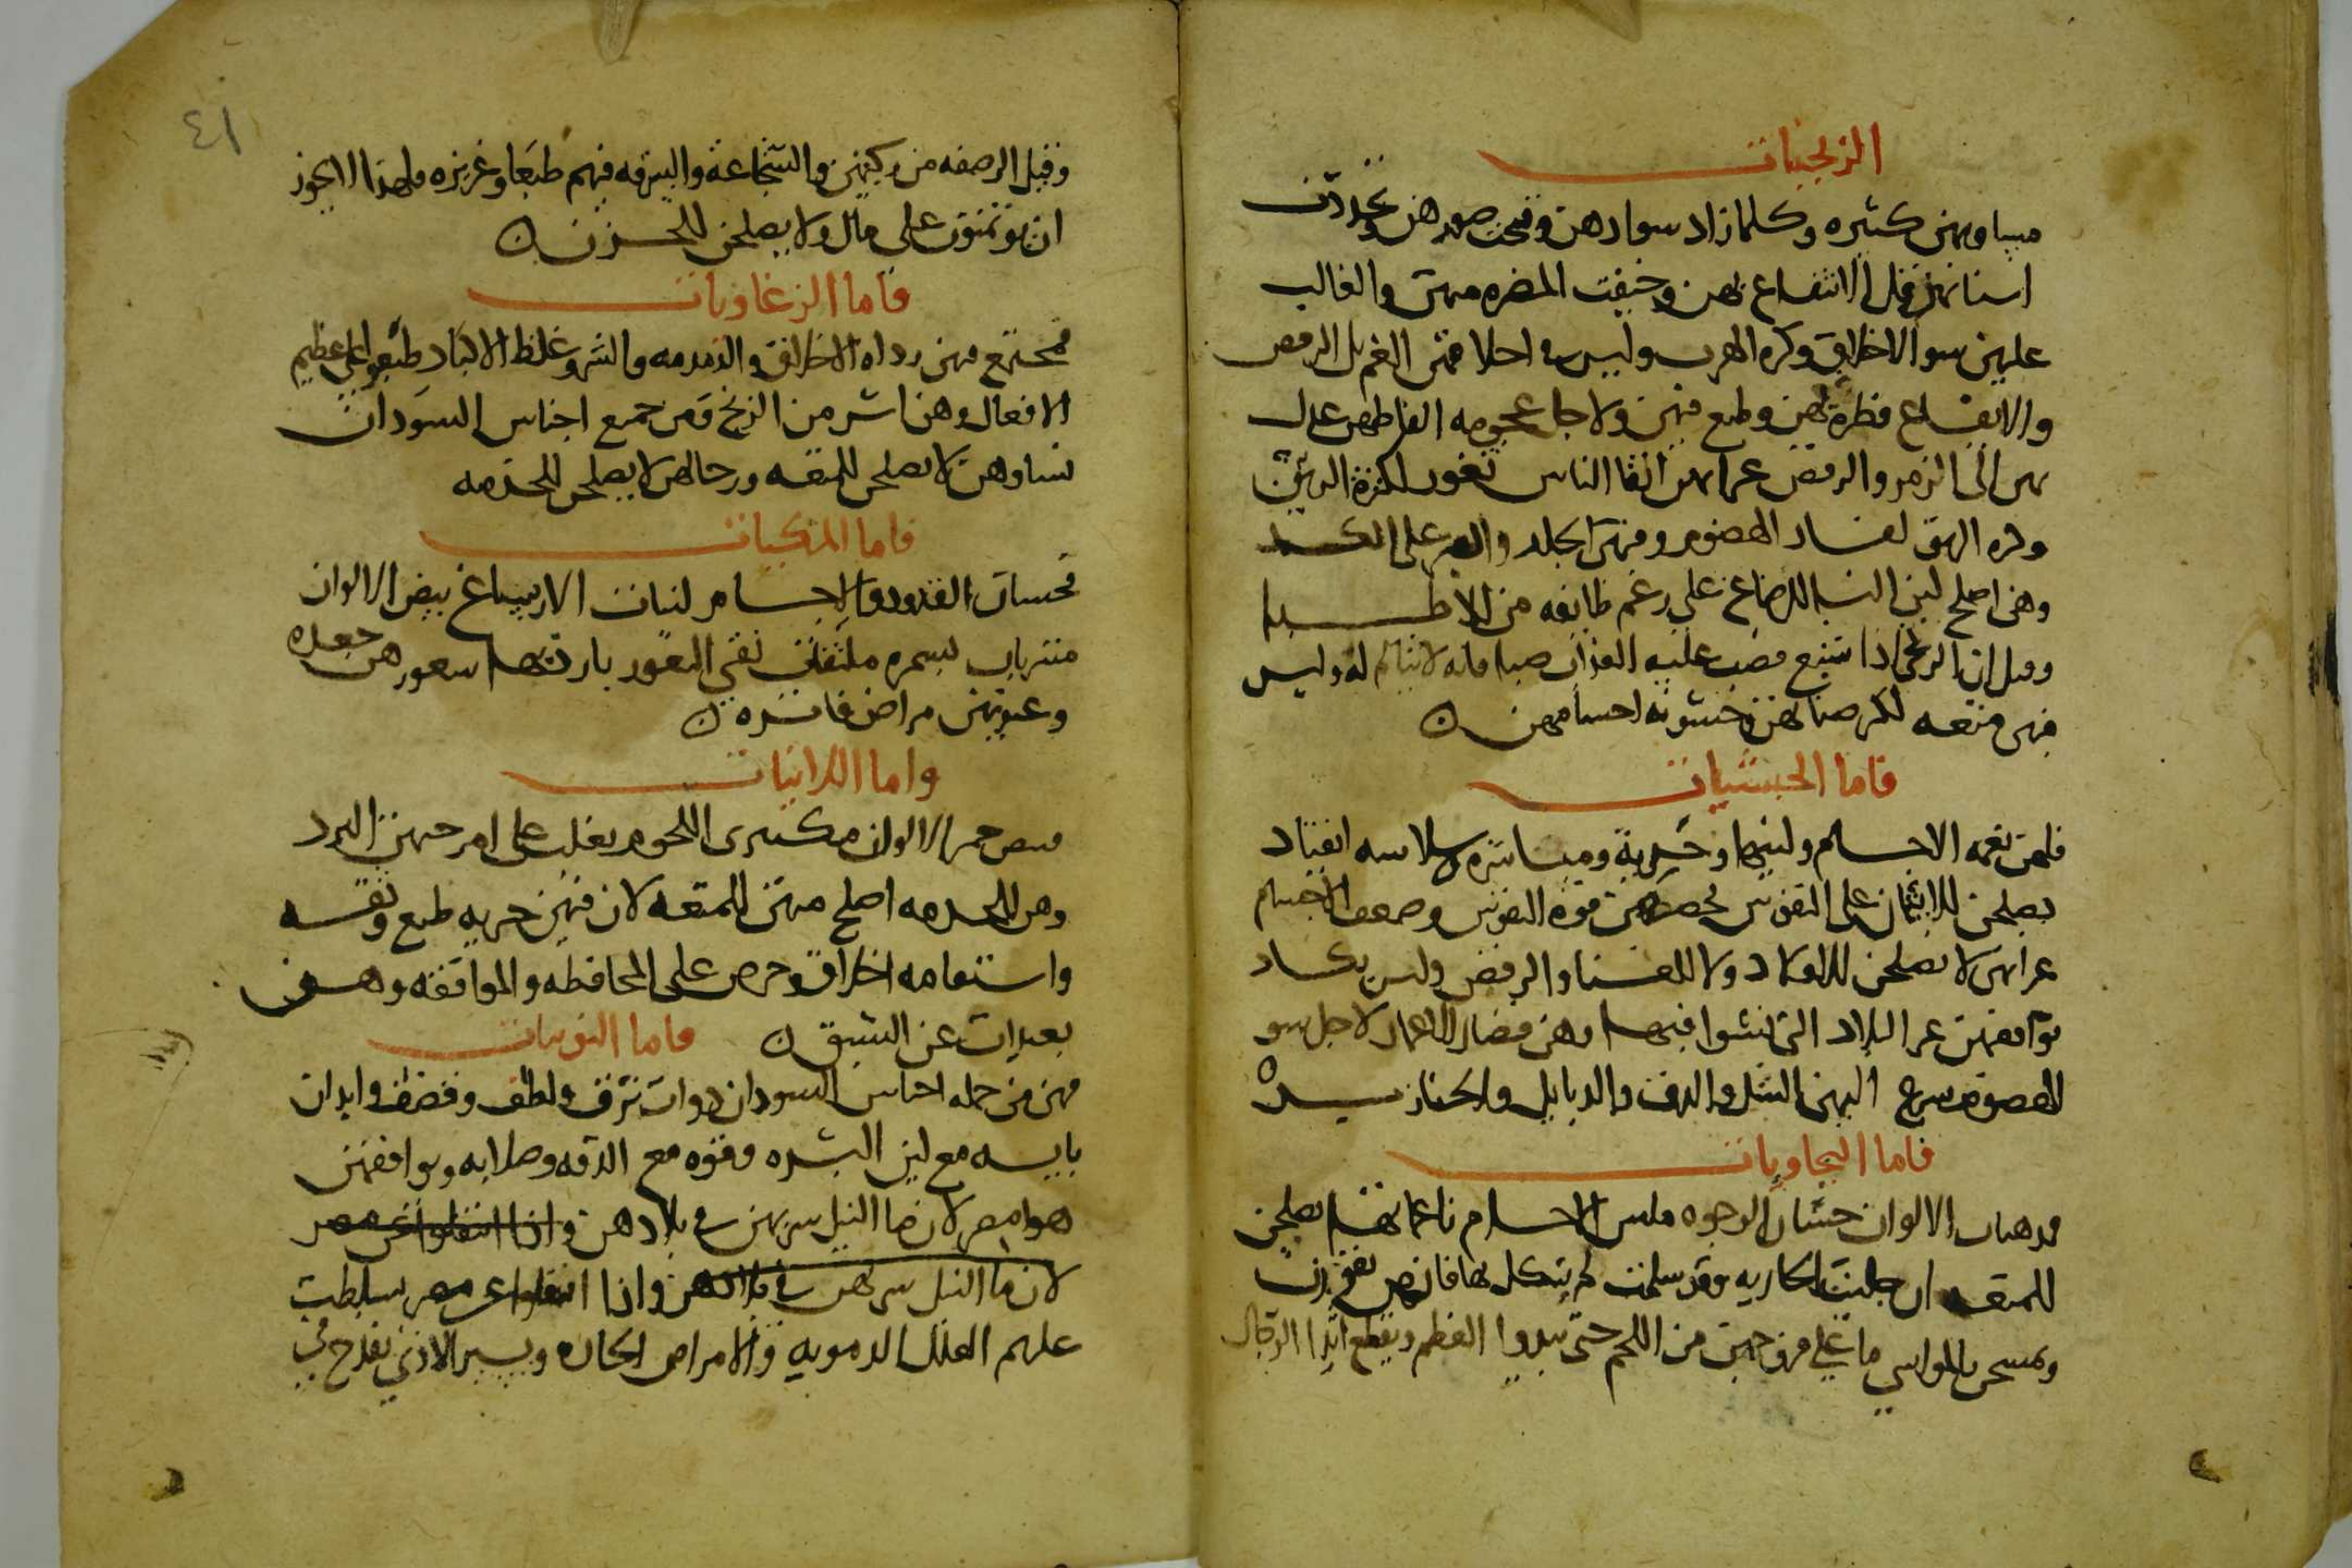 الزنجيات
مساويهن كثيره وكلما زاد سوادهن قبحت صورهن وتحددت
اسنانهن وقل الانتفاع بهن وخيفت المضره منهن والغالب
عليهن سو الاخلاق وكره الهرب وليس في اخلاقهن الغم بل الرقص
والايقاع فطرة لهن وطبع فيهن ولاجل عجومه الفاظهن عدل
بهن الى الزمر والرقص عراهن انقا الناس ثغور لكثرة الريق
وكره الريق لفساد الهضوم وفيهن الجلد والصبر على الكد
وهن اصلح لبن النسا للرضاع على رغم طايفه من الاطبا
وقيل ان الزنجي اذا شبع فصب عليه العذاب صبا فانه لا يتالم له وليس
فيهن متعه لكره صنانهن وخشونه اجسامهن
فاما الحبشيات
فلهن نعمه الاجسام ولينها وسلاسه انقياد
يصلحن للايتمان على النفوس يخصهن قوه النفوس وضعف الاجسام
لا يصلحن ولا للغنا والرقص وليس يكاد
يوافقهن غير البلاد التي نشوا فيها وهن قصار الاعمار لاجل سو
الهضوم يسرع اليهن السل والدق والدبايل والخنازير
فاما البجاويات
مذهبات الالوان حسان الوجوه ملس الاجسام ناعمات يصلحن
للمتعه ان جلبت الجاريه وقد سلمت لم ينكل بها فانهن
ويمسحن بالمواسي ما على فروجهن من اللحم حتى يبدوا العظم ويقطع اثدا الرجال
٤١
وقيل الرصفه من ركبهن والشجاعة والسرقه فيهم طبعا وغريزه ولهذا لا يجوز
ان يوتمنون على مال ولا يصلحن للخزن
فاما الزغاويات
فيجتمع فيهن رداه الاخلاق والدمدمه والشر وغلظ الاكباد طبعوا على عظيم
الافعال وهن اشر من الزنج ومن جميع اجناس السودان
نساوهن لا يصلحن للمتعه ورجالهن لا يصلحن للخدمه
فاما المتكيات
فحسان القدود والاجسام لينات الارساغ بيض الالوان
مشربات بسمره نقي الثغور بارد شعورهن جعده
وعيونهن مراض فاتره
واما اللانيات
فبيض حمر الالوان مكتنزي اللحوم يغلب على امزجتهن البرد
وهن للخدمه اصلح منهن للمتعه لان فيهن خيريه طبع وثقه
واستقامه اخلاق وحرص على المحافظه والموافقه وهن
بعيدات عن الشبق
فاما النوبيات
فهن من جمله اجناس السودان ذوات ترف ولطف وقضف وابدان
يابسه مع لين البشره وقوه مع الدقه وصلابه ويوافقهن
هوا مصر لان ما النيل شربهن في بلادهن واذا انتقلوا عن مصر
لان ما النيل شربهن في بلادهن واذا انتقلوا عن مصر تسلطت
عليهم العلل الدمويه والامراض الحاده ويسير الاذى يقدح في